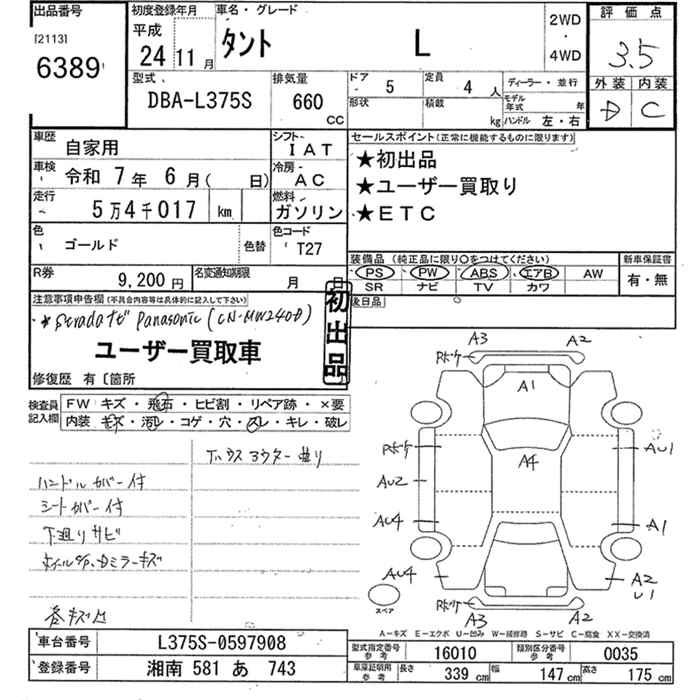 出品番号 初度登録年月 車名・グレード 評価点
[2113] 平成 タント L 2WD
6389 24 11月 ・ 3.5
4WD
型式 排気量 ドア 5 定員 4人 ディーラー・並行 外装 内装
DBA-L375S 660 形状 積載 モデル年式 年 D C
CC kg ハンドル 左・右
車歴 自家用 シフト IAT セールスポイント(正常に機能するものに限ります)
車検 令和 7年 6月( 日) 冷房 AC ★初出品
走行 5万4千017 km 燃料 ガソリン ★ユーザー買取り
★ETC
色 ゴールド 色替 色コード T27
装備品(純正品に限り○をつけてください) 新車保証書
R券 9,200円 名変通知期限 月 日 PS PW ABS エアB AW 有・無
SR ナビ TV カワ
注意事項申告欄(不具合内容等は具体的に記入して下さい) 初出品 後日品
*Stradaナビ Panasonic (CN-MW240D)
ユーザー買取車
修復歴 有〔箇所
検査員記入欄 FW キズ・飛石・ヒビ割・リペア跡・×要
内装 キズ・汚レ・コゲ・穴・スレ・キレ・破レ
ハンドルカバー付
シートカバー付
下廻りサビ
A3 A2
Rボケ
A1
Rボケ A4 AU1
AU2
AU4 A1
AU4 A2
U1
スペア Rボケ
A3 A2
A-キズ E-エクボ U-凹み W-補修跡 S-サビ C-腐食 XX-交換済
車台番号 L375S-0597908 型式指定番号 参考 16010 類別区分番号 参考 0035
登録番号 湘南 581 あ 743 車庫証明用 参考 長さ 339cm 幅 147cm 高さ 175cm